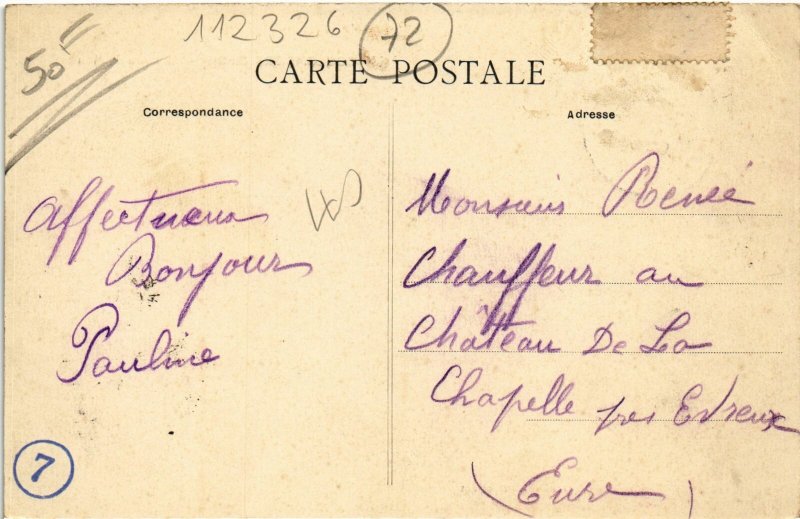 112326
72
50
CARTE POSTALE
Correspondance
Adresse
Affectueux
Bonjour
Pauline
7
Monsieur Renée
Chauffeur au
Château De La
Chapelle pres Evreux
(Eure)